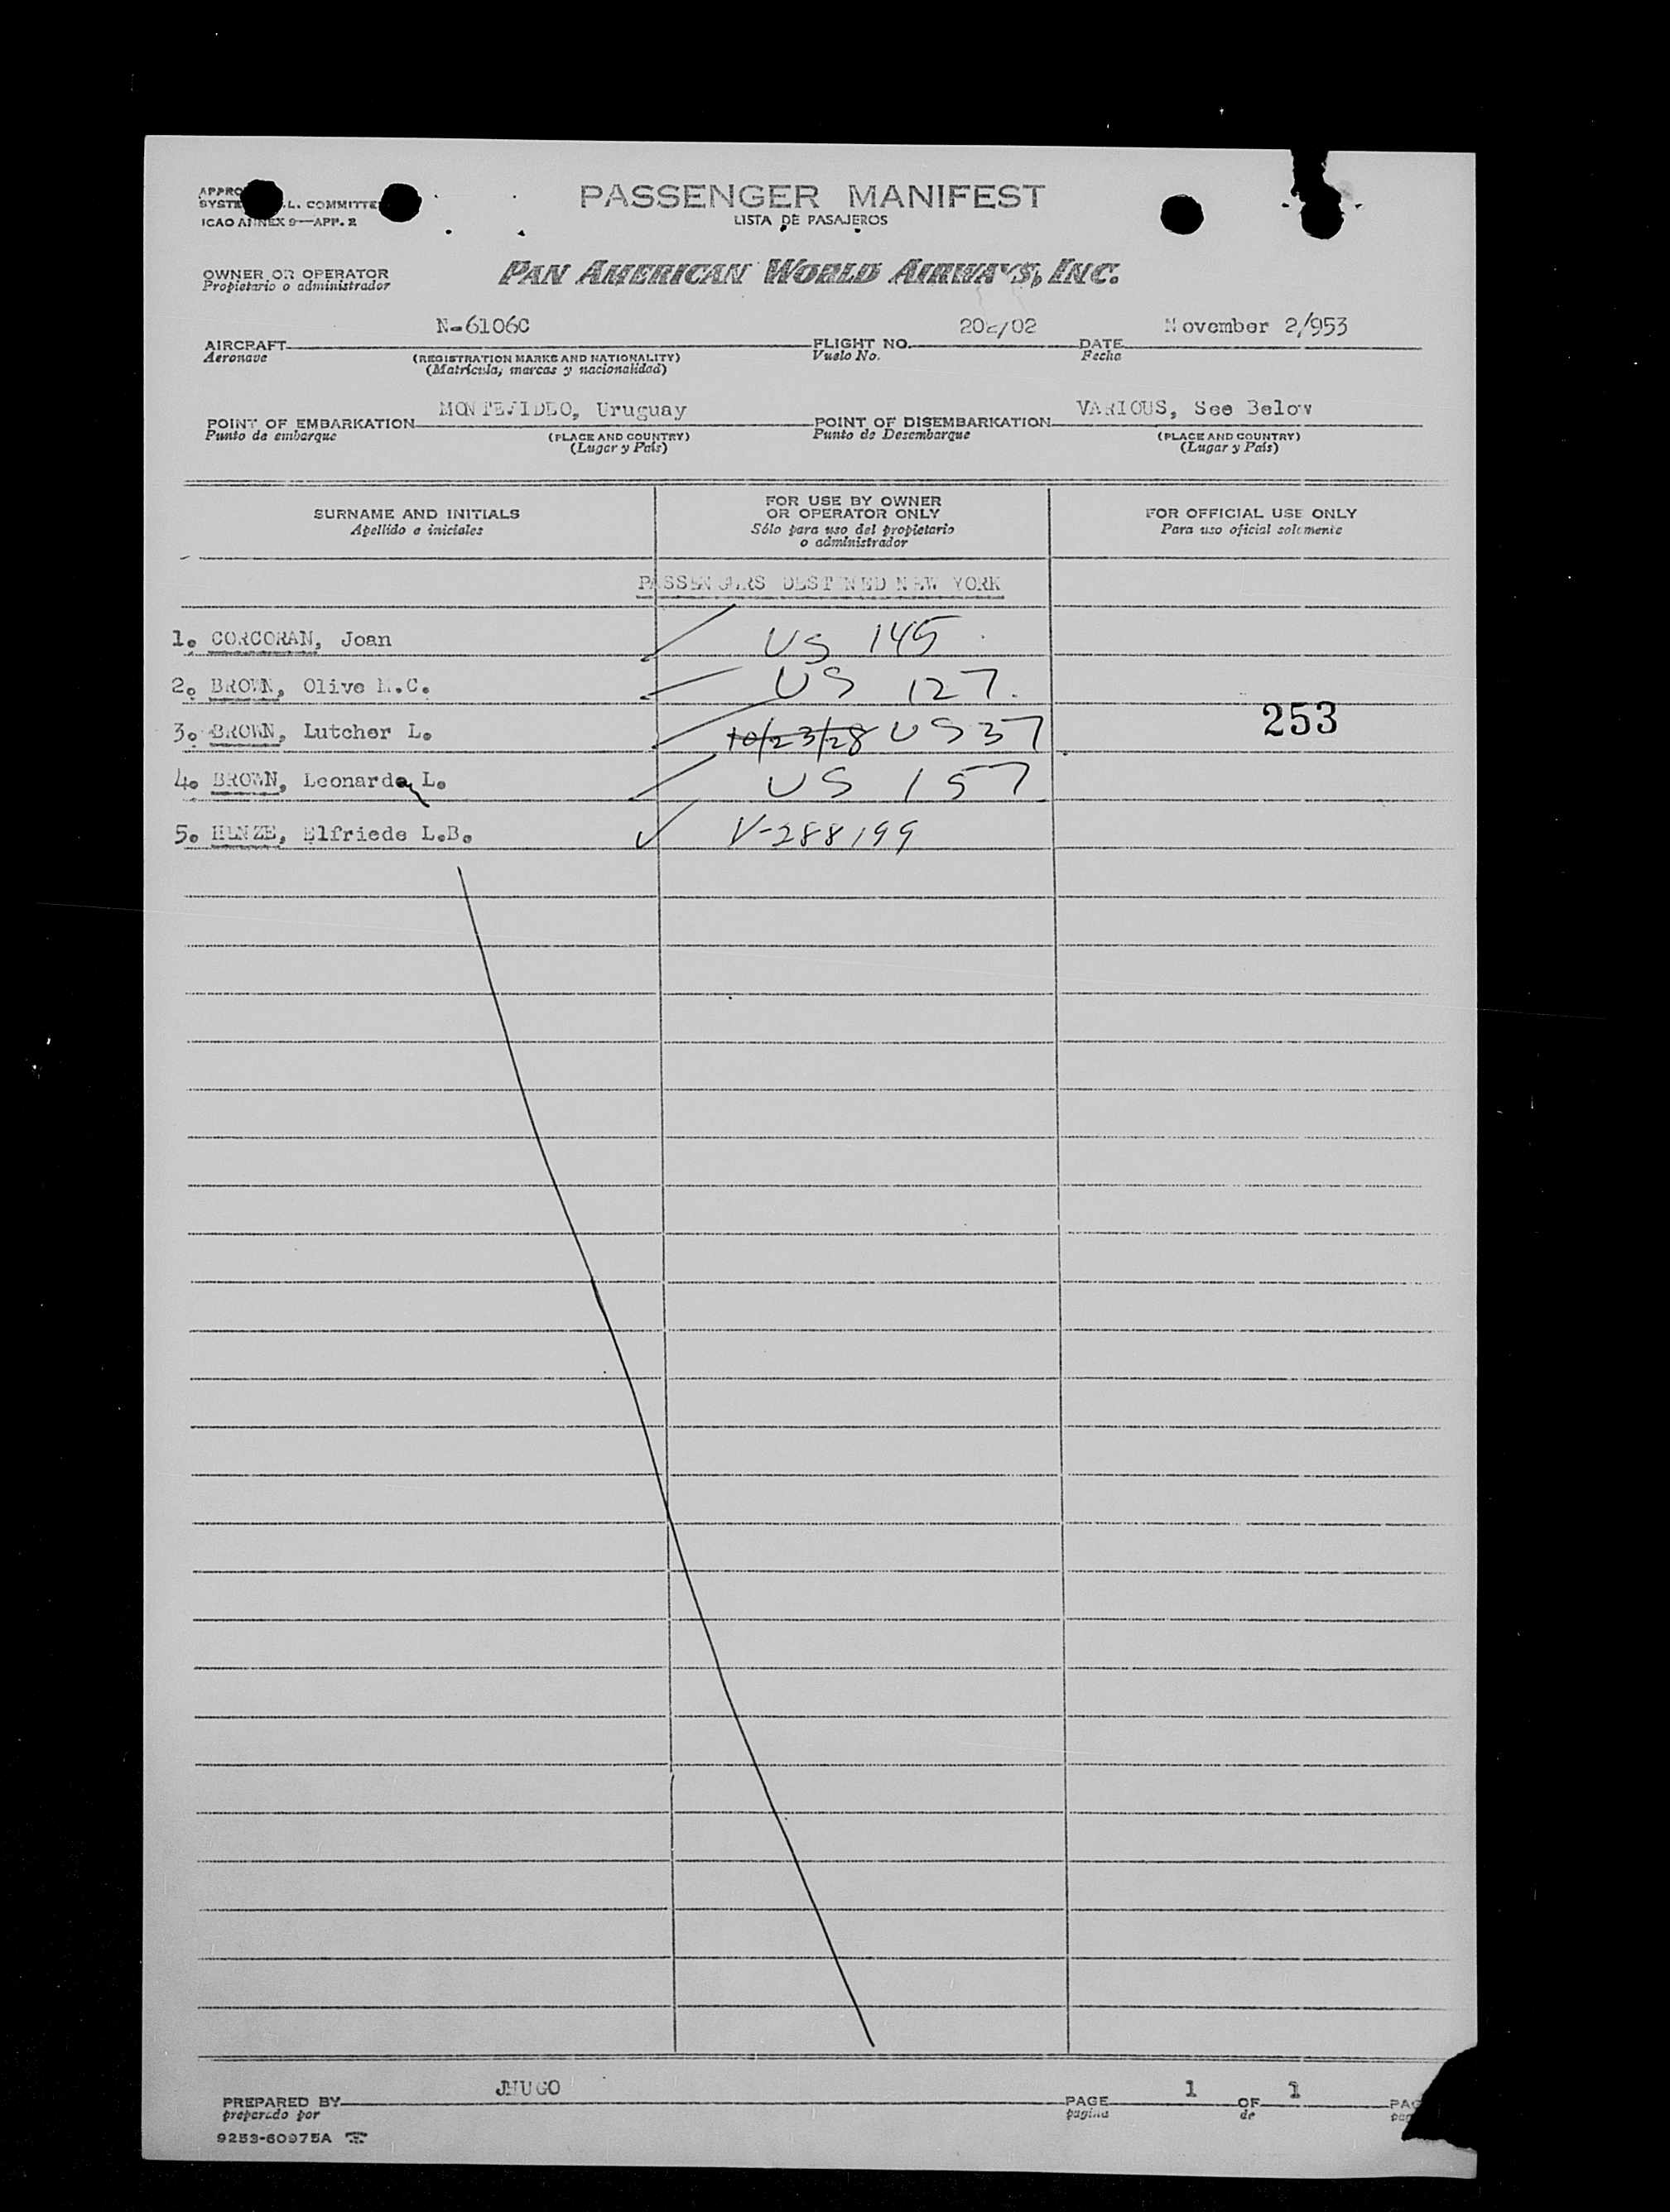 PASSENGER MANIFEST
LISTA DE PASAJEROS
ICAO ANNEX 9—APP. 2
OWNER OR OPERATOR
Propietario o administrador
PAN AMERICAN WORLD AIRWAYS, INC.
AIRCRAFT N-6106C FLIGHT NO. /02 DATE November 2/953
Aeronave (REGISTRATION MARKS AND NATIONALITY) Vuelo No. Fecha
(Matrícula, marcas y nacionalidad)
POINT OF EMBARKATION MONTEVIDEO, Uruguay POINT OF DISEMBARKATION VARIOUS, See Below
Punto de embarque (PLACE AND COUNTRY) Punto de Desembarque (PLACE AND COUNTRY)
(Lugar y País) (Lugar y País)
SURNAME AND INITIALS FOR USE BY OWNER OR OPERATOR ONLY FOR OFFICIAL USE ONLY
Apellido e iniciales Sólo para uso del propietario o administrador Para uso oficial solamente
PASSENGERS DESTINED NEW YORK
1. CORCORAN, Joan US 145
2. BROWN, Olive M.C. US 127.
3. BROWN, Lutcher L. 10/23/28 US 37 253
4. BROWN, Leonarda L. US 157
5. HINZE, Elfriede L.B. V-288199
PREPARED BY JHUGO PAGE 1 OF 1
preparado por pagina de
9253-60975A